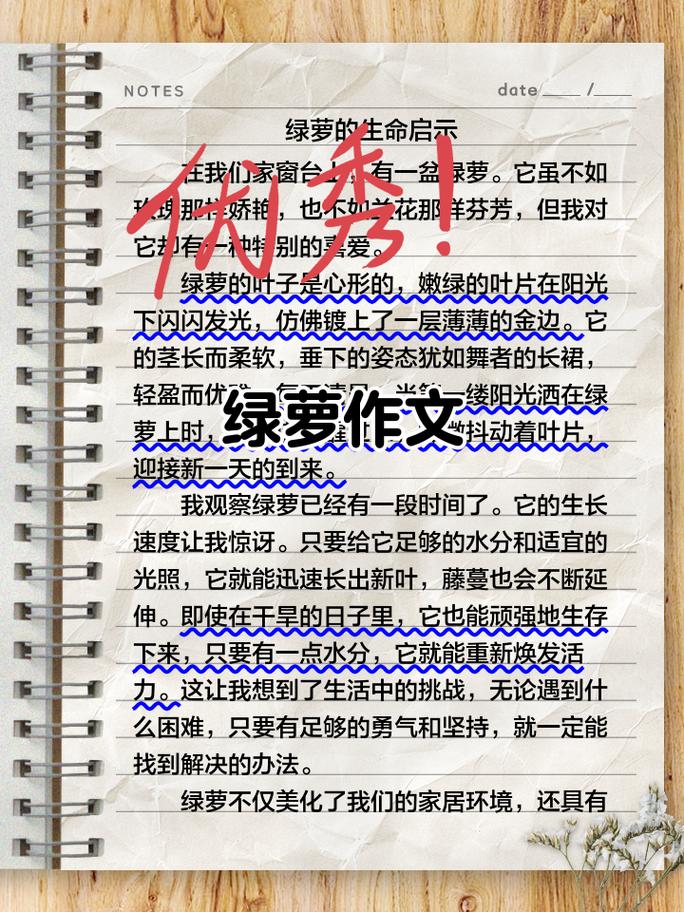 NOTES date ____ /____
绿萝的生命启示
在我们家窗台上,有一盆绿萝。它虽不如
玫瑰那样娇艳,也不如兰花那样芬芳,但我对
它却有一种特别的喜爱。
优秀!
绿萝的叶子是心形的,嫩绿的叶片在阳光
下闪闪发光,仿佛镀上了一层薄薄的金边。它
的茎长而柔软,垂下的姿态犹如舞者的长裙,
轻盈而优雅。每天清晨,当第一缕阳光洒在绿
绿萝作文
萝上时,微抖动着叶片,
迎接新一天的到来。
我观察绿萝已经有一段时间了。它的生长
速度让我惊讶。只要给它足够的水分和适宜的
光照,它就能迅速长出新叶,藤蔓也会不断延
伸。即使在干旱的日子里,它也能顽强地生存
下来,只要有一点水分,它就能重新焕发活
力。这让我想到了生活中的挑战,无论遇到什
么困难,只要有足够的勇气和坚持,就一定能
找到解决的办法。
绿萝不仅美化了我们的家居环境,还具有